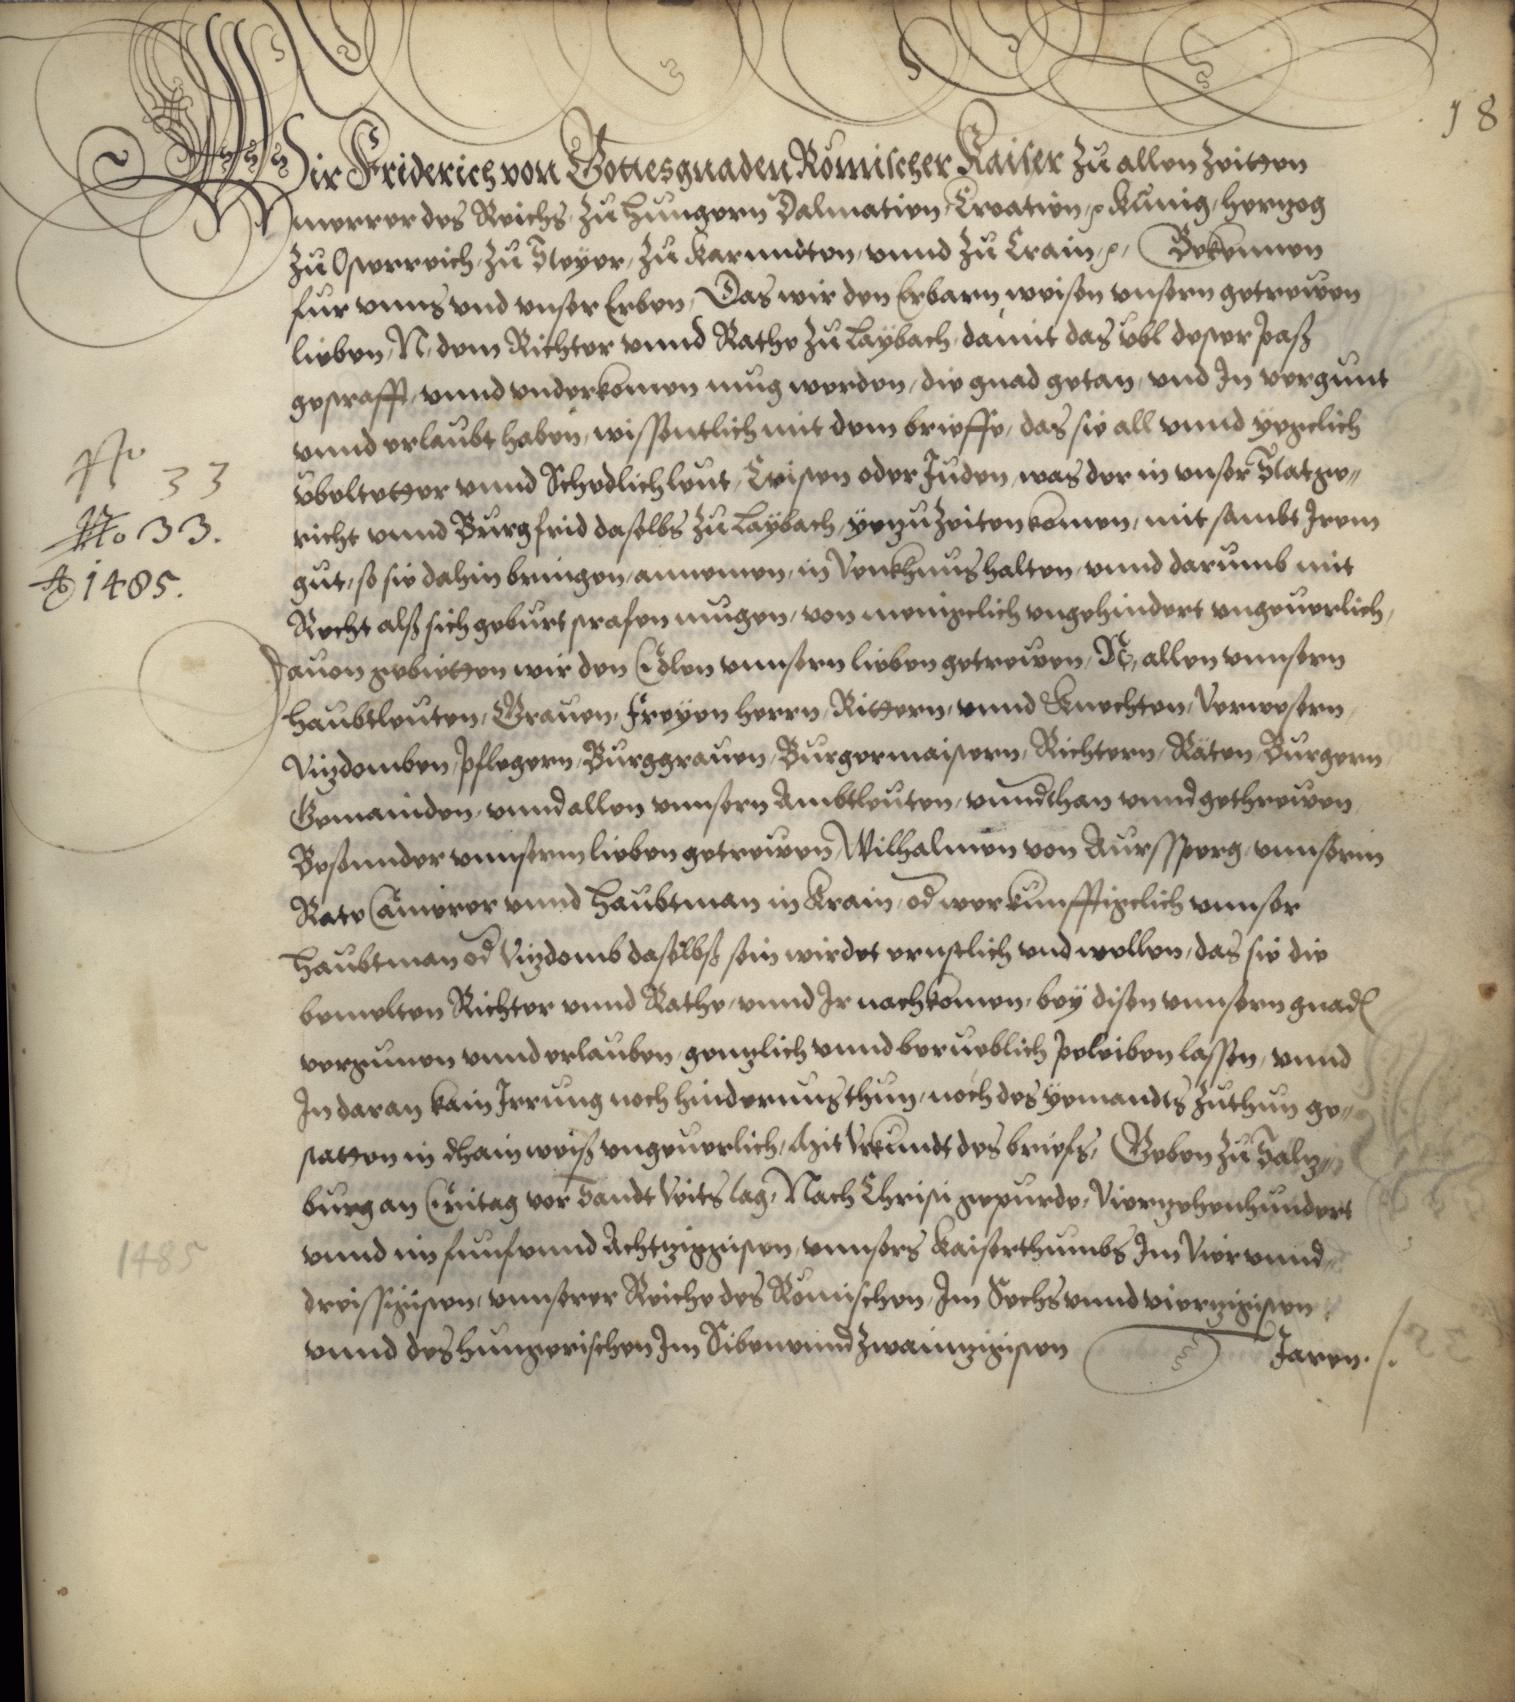 18
Wir Friderich von Gottes gnaden Römischer Kaiser zu allen Zeitten
merrer des Reichs, zu Hungern Dalmatien, Croatien, ꝛc Kunig, Hertzog
zu Osterreich, zu Steyer, zu Karnndten, vnnd zu Crain, ꝛc, Bekennen
fur vnns vnd vnser Erben, Das wir den Erbarn weisen vnsern getrewen
lieben, N, dem Richter vnnd Rathe zu Laybach, damit das übl dester paß
gestrafft, vnnd vnderkomen mug werden, die gnad getan, vnd In vergunt
vnnd erlaubt haben, wissentlich mit dem brieffe, das sie all vnnd yegclich
übeltetter vnnd Schedlich leut, Cristen oder Juden, was der in vnser Statge„
richt vnnd Burgfrid daselbs zu Laybach, yezuzeiten komen, mit sambt Irem
gut, so sie dahin bringen, annemen, in Venkhnus halten, vnnd darumb mit
No 33
No 33.
Ao 1485.
Recht alß sich geburt strafen mugen, von menigclich vngehindert vngeuerlich,
Dauon gebietten wir den Edlen vnnsern lieben getrewen, N, allen vnnsern
Haubtleuten, Grauen, Freyen Herrn, Rittern, vnnd Knechten, Verwesern,
Vizdomben, Pflegern, Burggrauen, Burgermaistern, Richtern, Räten, Burgern,
Gemainden, vnnd allen vnnsern Ambtleuten, vnndthan vnnd gethrewen
Besonnder vnnserm lieben getrewen, Wilhalmen von Aursperg, vnnserm
Rate Camerer vnnd Haubtman in Krain, od wer kunfftigclich vnnser
Haubtman od Vizdomb daselbß sein wirdet ernstlich vnd wellen, das sie die
bemelten Richter vnnd Rathe, vnnd Ir nachkomen, bey disen vnnsern gnad
vergunnen vnnd erlauben, genzlich vnnd berueblich peleiben lassen, vnnd
In daran kain Irrung noch hindernus thun, noch des yemandts zuthun ge„
statten in dhain weiß vngeuerlich, Mit Vrkundt des briefs, Geben zu Saltz„
burg an Eritag vor Sandt Veits tag, Nach Christi gepurde, Viertzehenhundert
vnnd im funfvnnd Achtzigisten, vnnsers Kaiserthumbs Im Viervnnd„
1485
dreissigisten, vnnserer Reiche des Römischen, Im Sechsvnnd viertzigisten
vnnd des Hungerischen Im Sibenvnnd Zwaintzigisten Jaren.